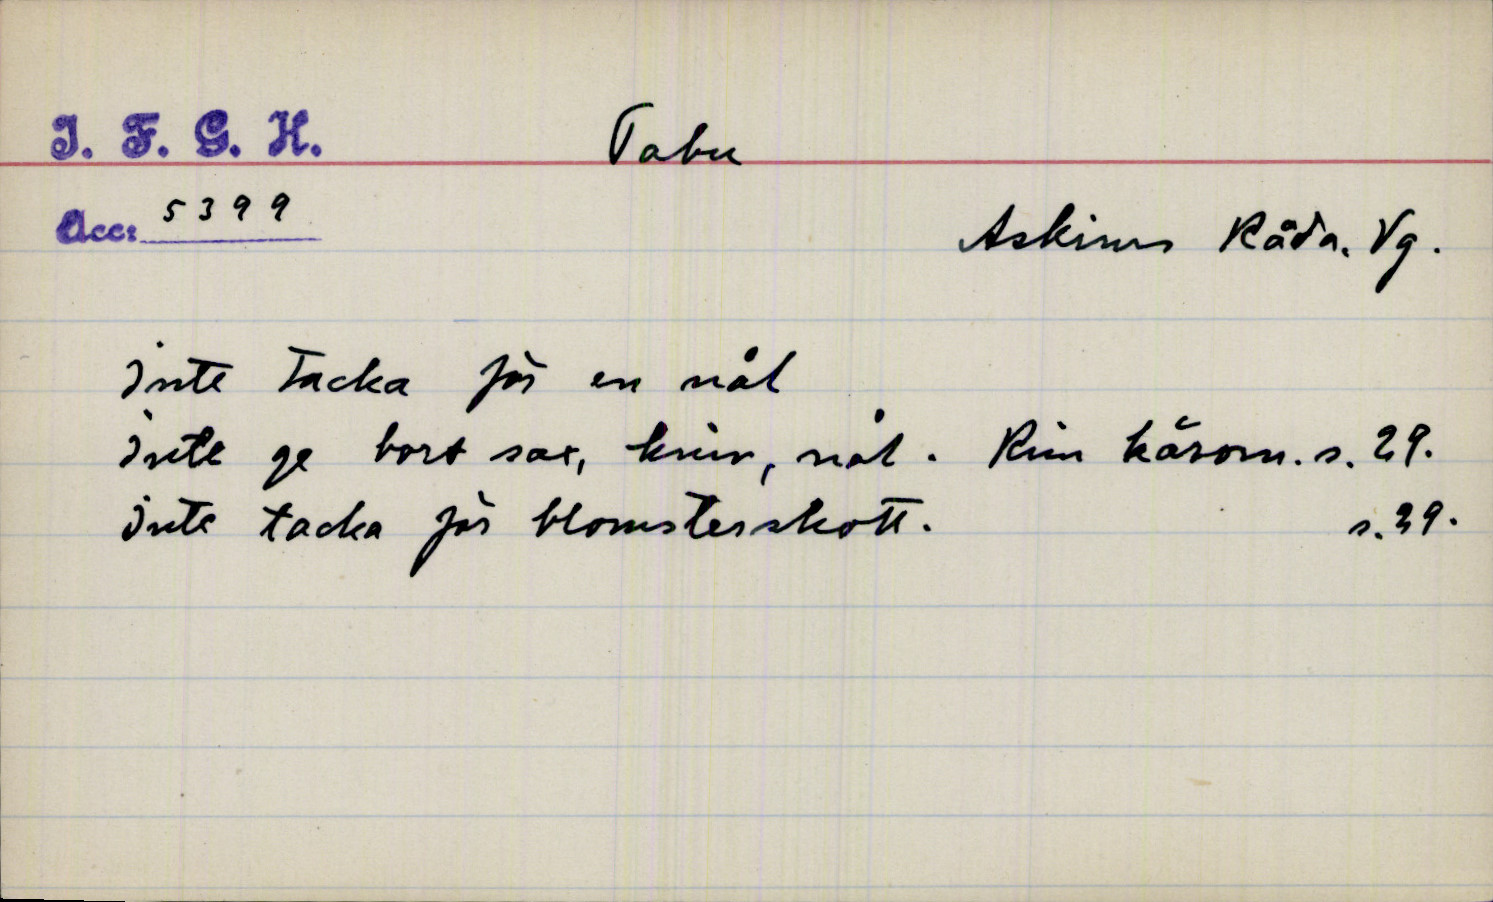 I. F. G. H.
Tabu
Acc: 5399
Askims Råda. Vg.
inte tacka för en nål
inte ge bort sax, kniv, nål. s. 29.
inte tacka för blomsterskott. s. 39.